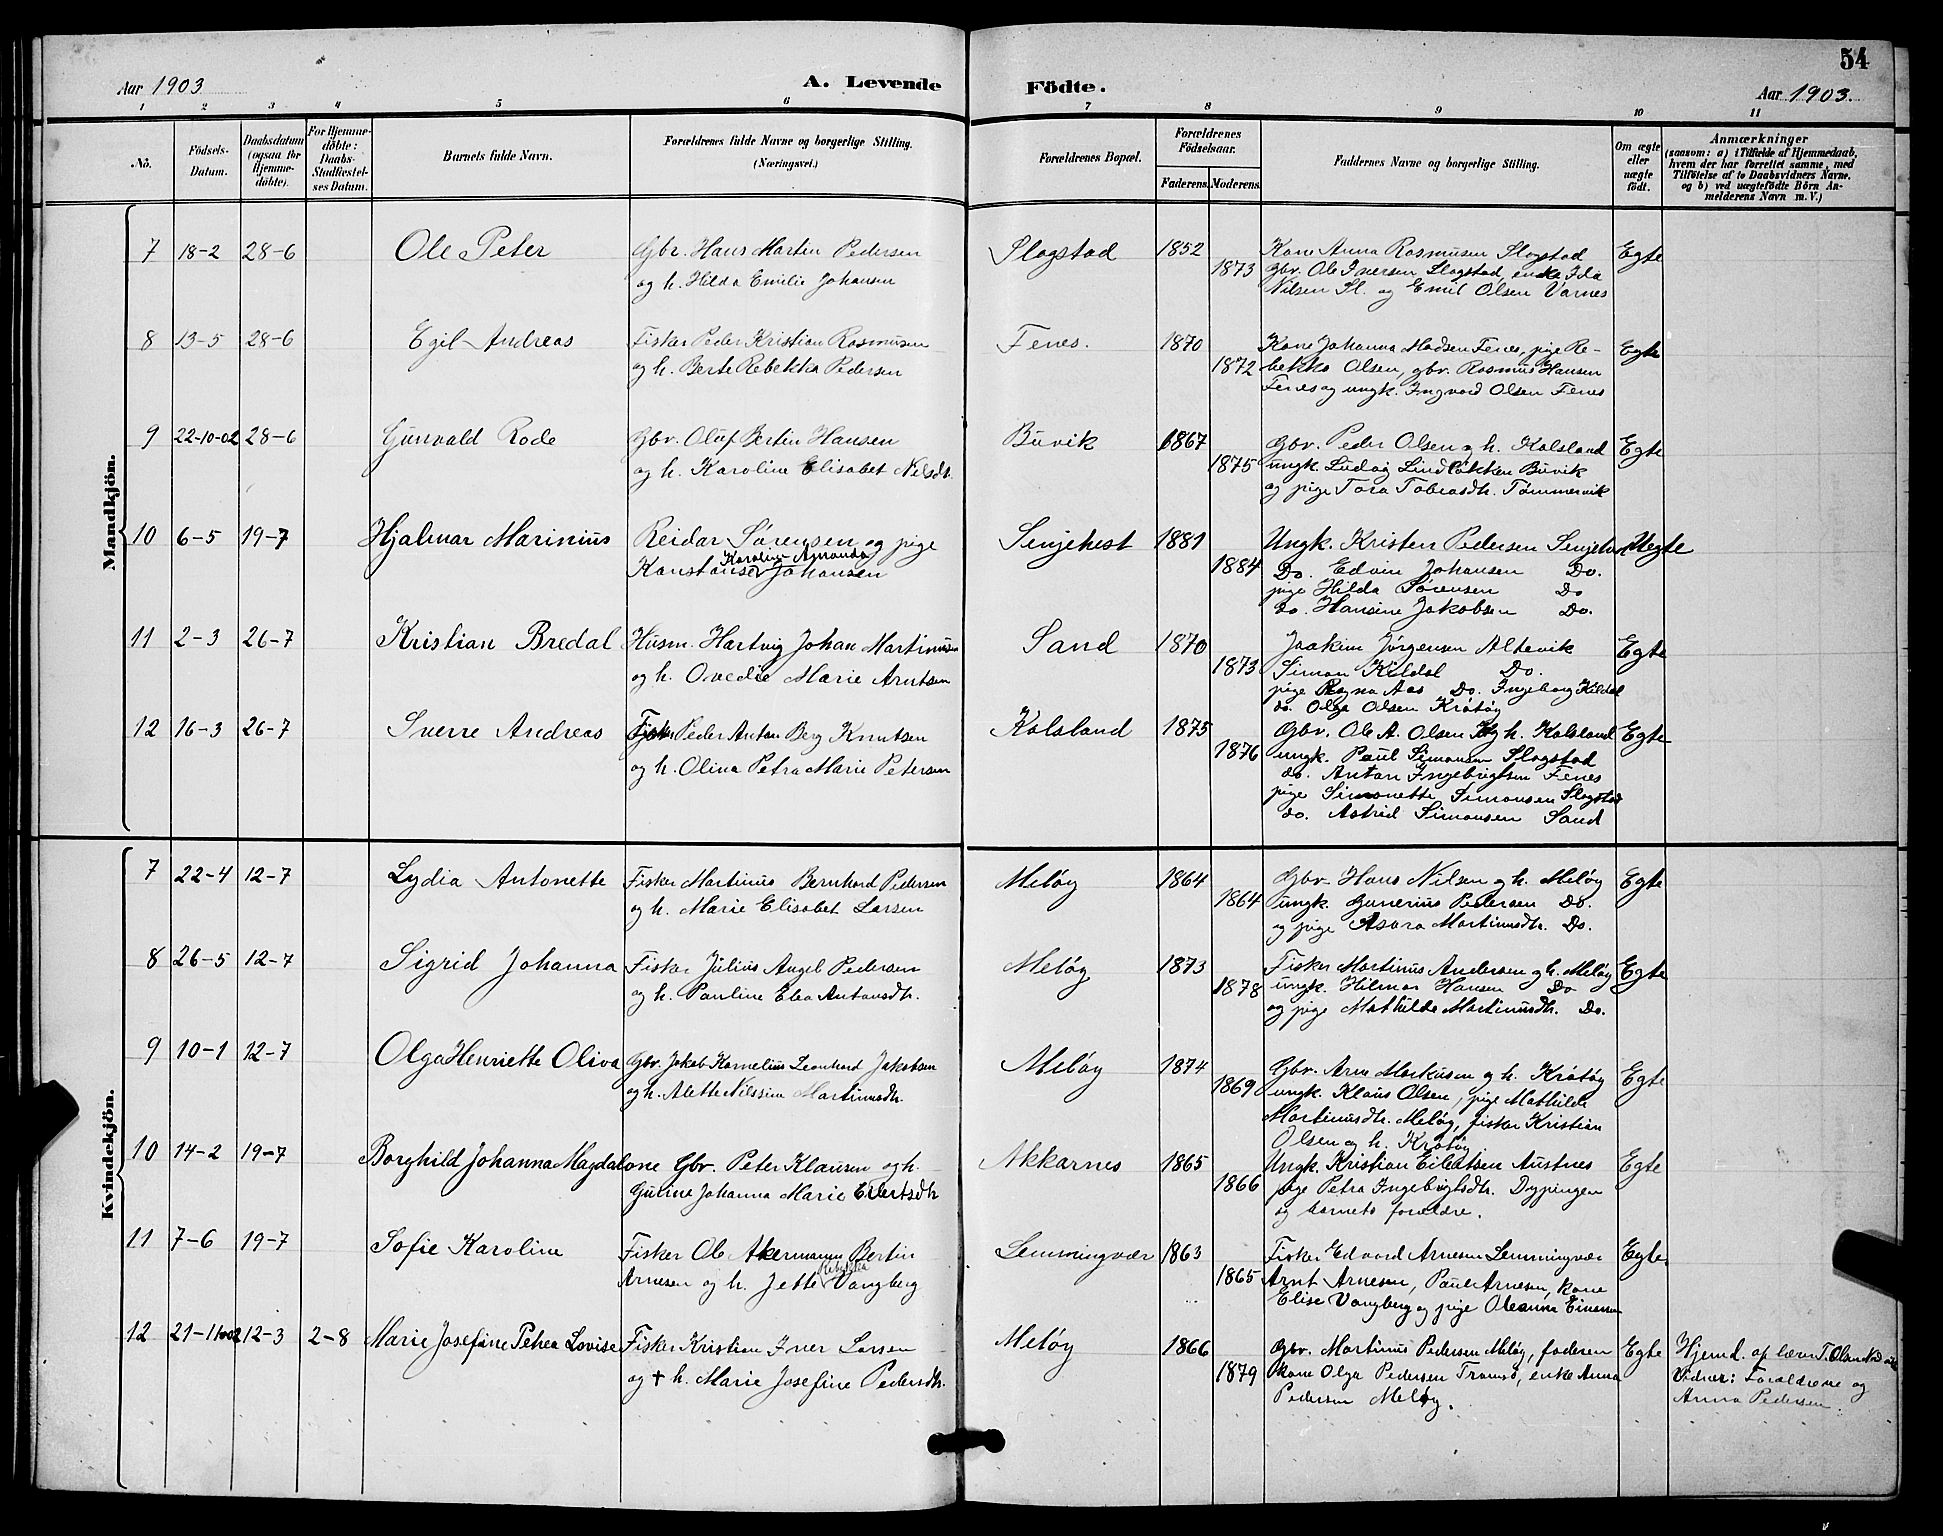 54
Aar 1903
A. Levende
Födte.
Aar 1903.
1 2 3 4 5 6 7 8 9 10 11
No.
Födsels-Datum.
Daabsdatum (ogsaa for Hjemme-döbte).
For Hjemme-döbte: Daabs-Stadfæstel-ses Datum.
Barnets fulde Navn.
Forældrenes fulde Navne og borgerlige Stilling. (Næringsvei.)
Forældrenes Bopæl.
Forældrenes Födselsaar.
Faderens. Moderens.
Faddernes Navne og borgerlige Stilling.
Om ægte eller uægte födt.
Anmærkninger
(saasom: a) i Tilfælde af Hjemmedaab, hvem der har forrettet samme, med Tilföielse af to Daabsvidners Navne, og b) ved uægtefödte Börn An-melderens Navn m. V.)
Mandkjön.
7 18-2 28-6 Ole Peter Gbr. Hans Martin Pedersen Slogstad 1852 Kone Anna Rasmusen Slogstad Egte
og h. Hilda Emilie Johansen 1873 gbr. Ole Iversen Slogstad, enke Ida
Nilsen Sl. og Emil Olsen Varnes
8 13-5 28-6 Egil Andreas Fisker Peder Kristian Rasmusen Fenes. 1870 Kone Johanna Madsen Fenes, pige Re- Egte
og h. Berte Rebekka Pedersen 1872 bekka Olsen, gbr. Rasmus Hansen
Fenes og ungk. Ingvard Olsen Fenes
9 22-10-02 28-6 Gunvald Rode Gbr. Oluf Bertin Hansen Buvik 1867 Gbr. Peder Olsen og h. Kalsland Egte
og h. Karoline Elisabet Nilsdt. 1875 ungk. Ludvig Lindløkken Buvik
og pige Tora Tobiasdtr. Tømmervik
10 6-5 19-7 Hjalmar Marinius Reidar Sørensen og pige Senjehest 1881 Ungk. Kristen Pedersen Senjeh. Uegte
Karoline Amanda
Konstanse Johansen 1884 Do. Edvin Johansen Do.
pige Hilda Sørensen Do
do. Hansine Jakobsen Do.
11 2-3 26-7 Kristian Bredal Husm. Hartvig Johan Martinusen Sand 1870 Joakim Jørgensen Altevik Egte
og h. Ovedie Marie Arntsen 1873 Simon Kildal Do.
pige Ragna Aas Do. Ingeborg Kildal
do. Olga Olsen Krøtøy
12 16-3 26-7 Sverre Andreas Fisker Peder Antan Berg Knutsen Kalsland 1875 Gbr. Ole A. Olsen og h. Kalsland Egte
og h. Olina Petra Marie Petersen 1876 ungk. Paul Simonsen Slogstad
do. Antan Ingebrigtsen Fenes
pige Simonette Simonsen Slogstad
do. Astrid Simonsen Sand
Kvindekjön.
7 22-4 12-7 Lydia Antonette Fisker Martinus Bernhard Pedersen Meløy 1864 Gbr Hans Nilsen og h. Meløy Egte
og h. Marie Elisabet Larsen 1864 ungk. Gunerius Pedersen Do.
og pige Asora Martinusdtr. Do.
8 26-5 12-7 Sigrid Johanna Fisker Julius Angel Pedersen Meløy 1873 Fisker Martinus Andersen og h. Meløy Egte
og h. Pauline Elea Antansdtr. 1878 ungk. Hilmar Hansen Do
og pige Mathilde Martinusdtr. Do.
9 10-1 12-7 Olga Henriette Oliva Gbr. Jakob Kornelius Leonhard Jakobsen Meløy 1874 Gbr. Arn Markusen og h. Krøtøy Egte
og h. Alette Nilssine Martinusdtr. 1869 ungk. Klaus Olsen, pige Mathilde
Martinusdtr. Meløy, fisker Kristian
Olsen og h. Krøtøy
10 14-2 19-7 Borghild Johanna Magdalone Gbr. Peter Klausen og h. Akkarnes 1865 Ungk. Kristian Eilertsen Austnes Egte
Gurine Johanna Marie Eilertsdtr 1866 pige Petra Ingebrigtsdtr. Dypingen
og barnets forældre.
11 7-6 19-7 Sofie Karoline Fisker Ole Akermann Bertin Lemmingvær 1863 Fisker Edvard Arnesen Lemmingvær Egte
Rebekka
Arnesen og h. Jette Vangberg 1865 Arnt Arnesen, Paul Arnesen, kone
Elise Vangberg og pige Oleanna Einarsen
12 21-11-02 12-3 2-8 Marie Josefine Petrea Lovise Fisker Kristian Iver Larsen Meløy 1866 Gbr. Martinus Pedersen Meløy, faderen Egte Hjemd. af lærer T. Olsen
og † h. Marie Josefine Pedersdtr. 1879 kone Olga Pedersen Tromsø, enke Anna Vidner: Forældrene og
Pedersen Meløy. Anna Pedersen.